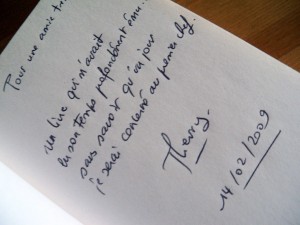 Pour une amie
un livre qui m'avait
en son temps profondément ému
sans savoir qu'un jour
je serai concerné au premier chef.
Thierry.
14/02/2009